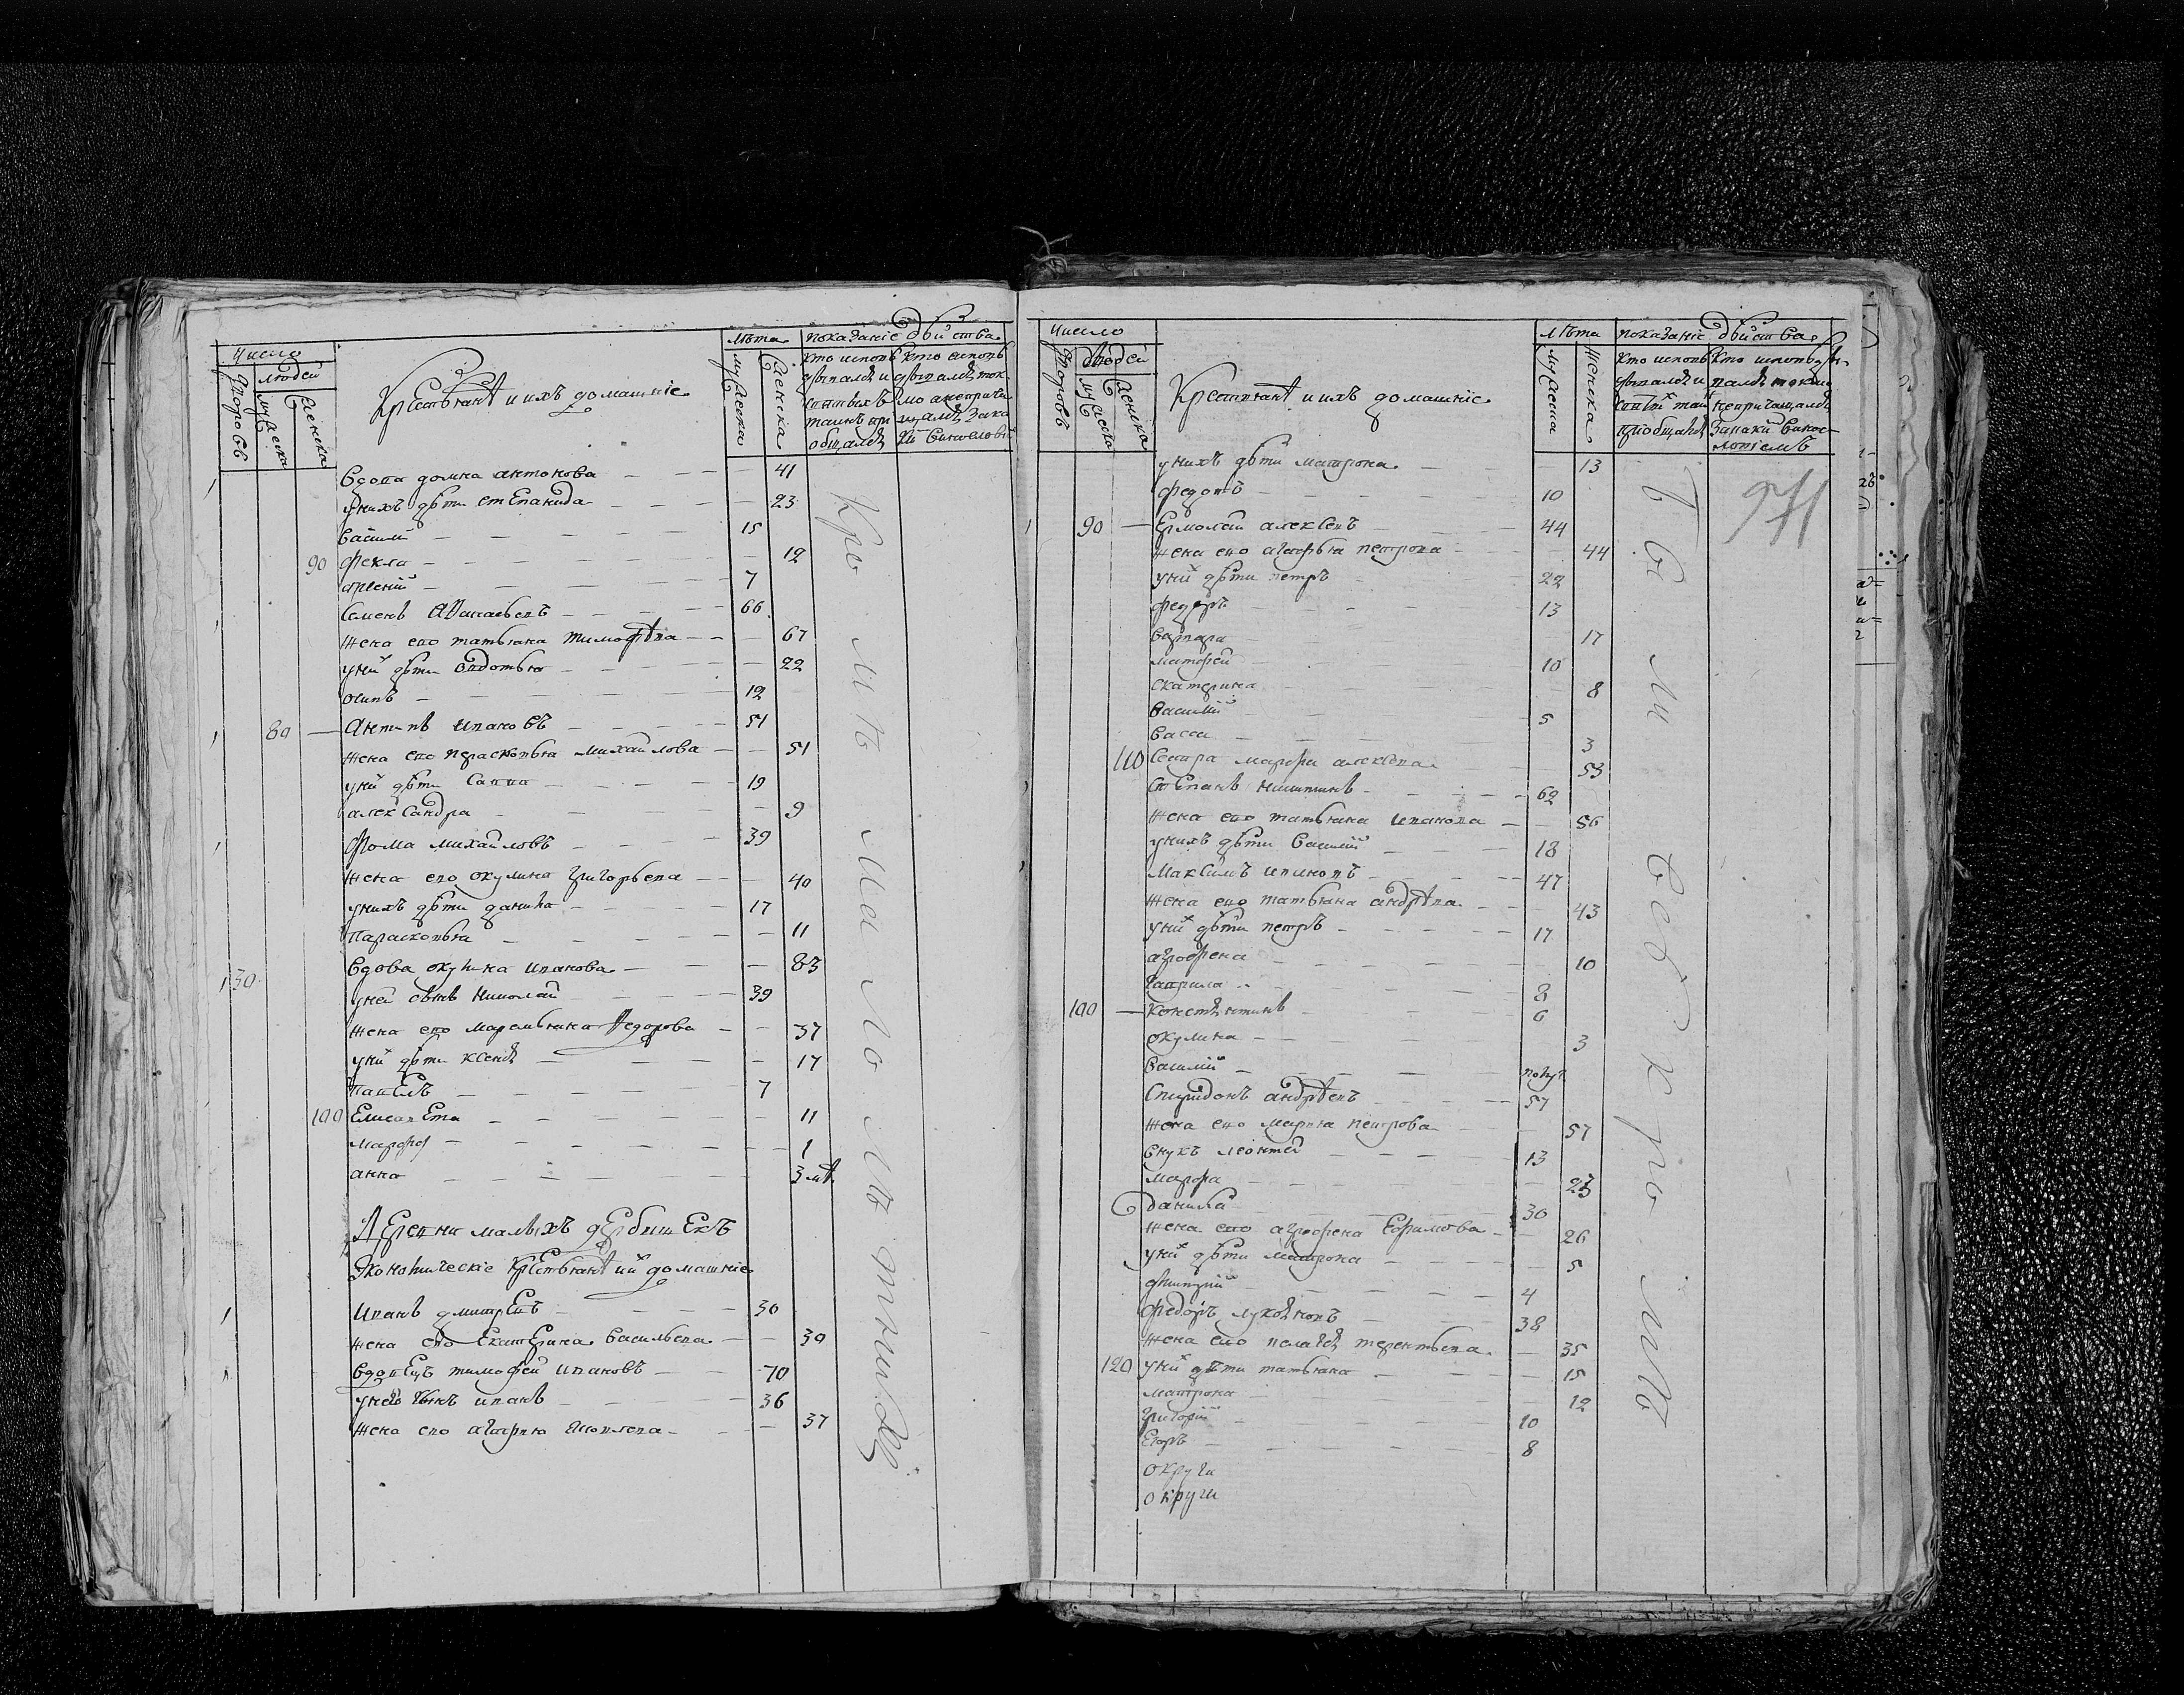 Число
людей
дворовъ
мужеска
женска
крестьянѣ и ихъ домашніе
лѣта
мужеска
женска
показаніе дѣйства
кто исповѣдывался и святыхъ таинъ приобщался
вдова домна антонова 41
у нихъ дѣти степанида 23
василій 15
90 фекла 12
арсеній 7
семенъ аѳанасьевъ 66
жена ево татьяна тимофѣева 67
у них дѣти овдотья 22
осипъ 12
80 антипъ ивановъ 51
жена ево парасковья михайлова 51
у них дѣти савва 19
александра 9
фома михайловъ 39
жена ево окулина григорьева 40
у нихъ дѣти данила 17
парасковья 11
30 вдова окулина иванова 83
у ней сынъ николай 39
жена ево маремьяна ѳедорова 37
у них дѣти ксенѧ 17
павелъ 7
100 елисавета 11
марфа 1
анна 3 мѣ
деревни малыхъ дербишекъ
экономическіе крестьянѣ и их домашніе
иванъ дмитревъ 30
жена ево екатерина васильева 30
вдовецъ тимофей ивановъ 70
у нево сынъ иванъ 36
жена ево агафья яковлева 37
кро мѣ мало лѣтнихъ
Число
людей
дворовъ
мужеска
женска
крестьянѣ и ихъ домашніе
лѣта
мужеска
женска
показаніе дѣйства
971
у нихъ дѣти матрона 13
федотъ 10
90 ермолай алексевъ 44
жена ево агафья петрова 44
у них дѣти петръ 22
федоръ 13
варвара 17
матфей 10
екатерина 8
василий 5
васса 3
110 сестра марфа алексева 53
степанъ никитинъ 62
жена ево татьяна иванова 56
у нихъ дѣти василий 18
максимъ ивановъ 47
жена ево татьяна андрѣева 43
у них дѣти петръ 17
агрофена 10
гаврила 8
100 констѧнтинъ 6
окулина 3
василий полуг
спиридонъ андрѣевъ 57
жена ево марья петрова 57
внукъ леонтей 13
марфа 23
данила 30
жена ево агрофена ефимова 26
у них дѣти матрона 5
дмитрий 4
федоръ лукояновъ 38
жена ево пелагѧ терентьева 35
120 у них дѣти татьяна 15
матрона 12
григорий 10
егоръ 8
округи
округи